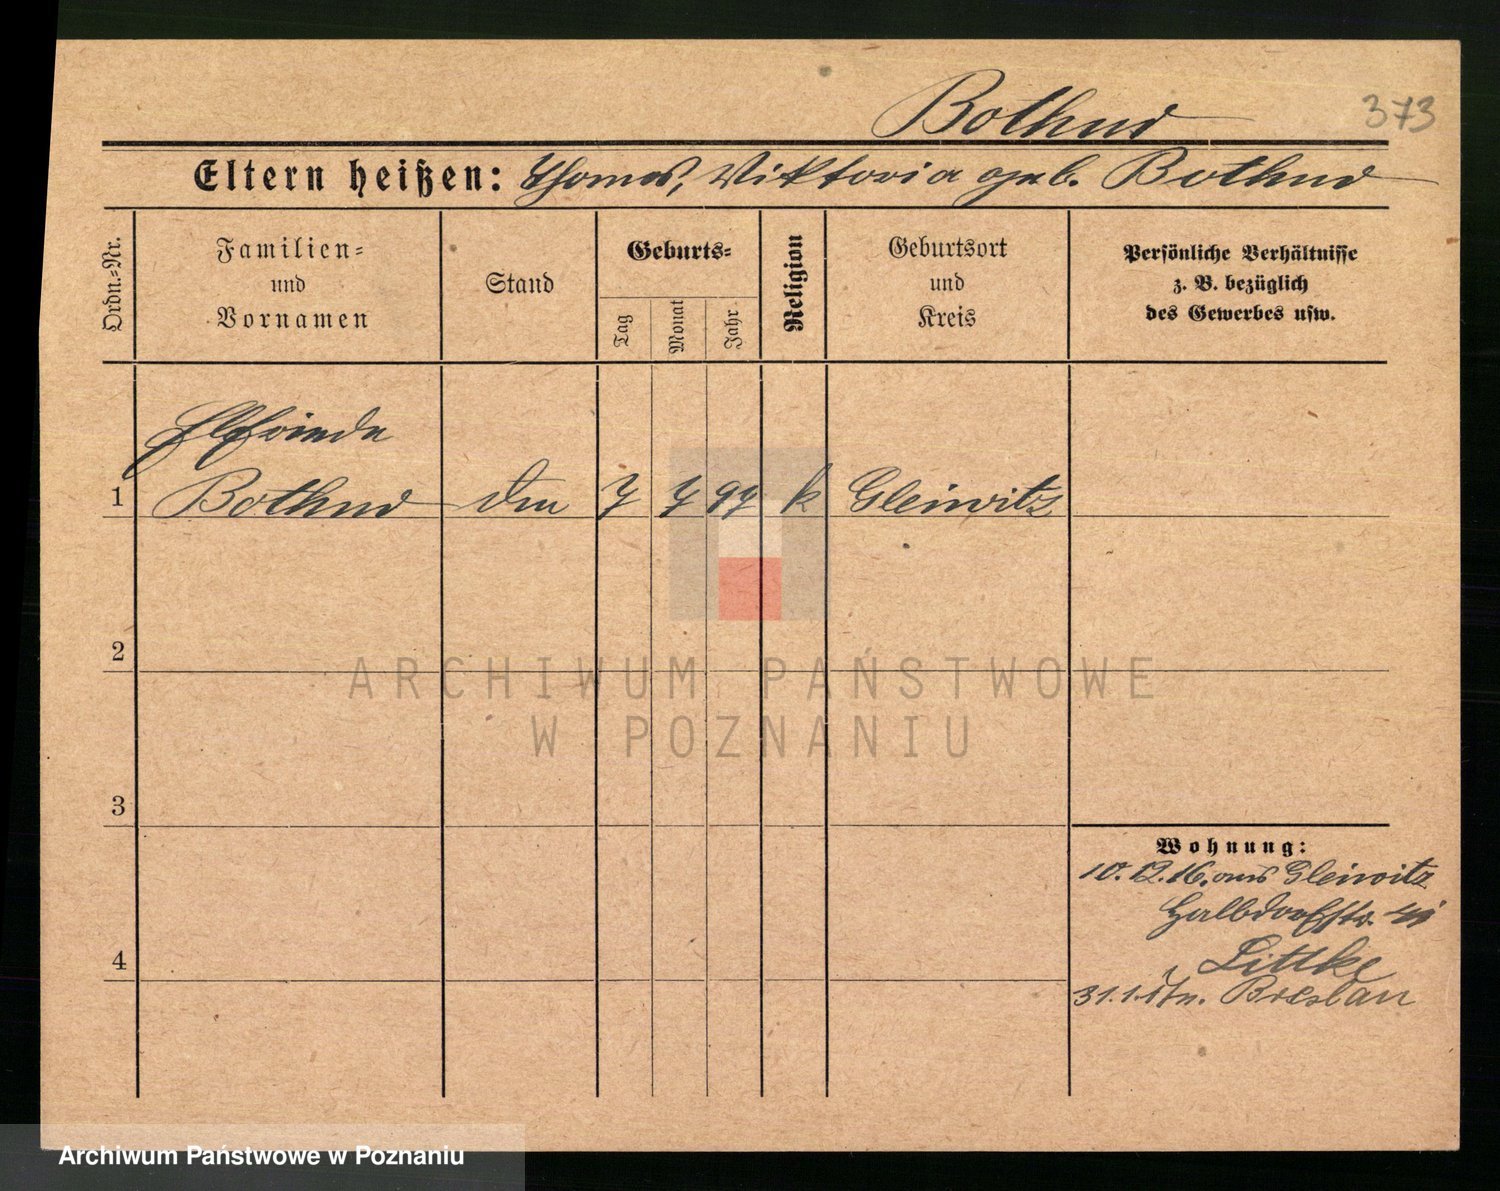 Bothur
373
Eltern heißen: Thomas, Viktoria geb. Bothur
Ordn.-Nr.
Familien-
und
Vornamen
Stand
Geburts-
Tag
Monat
Jahr
Religion
Geburtsort
und
Kreis
Persönliche Verhältnisse
z. B. bezüglich
des Gewerbes usw.
Elfriede
1 Bothur 7 7 97 k Gleiwitz
2
3
4
Wohnung:
10.12.16. aus Gleiwitz
Halbdorfstr.
Littke
31.1.17 n. Breslau
ARCHIWUM PAŃSTWOWE
W POZNANIU
Archiwum Państwowe w Poznaniu